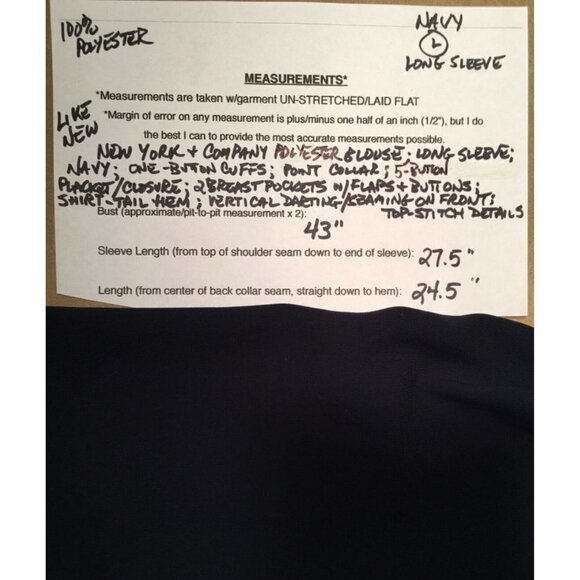 100% POLYESTER
NAVY
L
LONG SLEEVE
MEASUREMENTS*
*Measurements are taken w/garment UN-STRETCHED/LAID FLAT
*Margin of error on any measurement is plus/minus one half of an inch (1/2"), but I do
the best I can to provide the most accurate measurements possible.
LIKE NEW
NEW YORK + COMPANY POLYESTER BLOUSE; LONG SLEEVE;
NAVY; ONE-BUTTON CUFFS; POINT COLLAR; 5-BUTTON
PLACKET/CLOSURE; 2 BREAST POCKETS W/FLAPS + BUTTONS;
SHIRT-TAIL HEM; VERTICAL DARTING/SEAMING ON FRONT;
TOP-STITCH DETAILS
Bust (approximate/pit-to-pit measurement x 2):
43"
Sleeve Length (from top of shoulder seam down to end of sleeve): 27.5"
Length (from center of back collar seam, straight down to hem): 24.5"